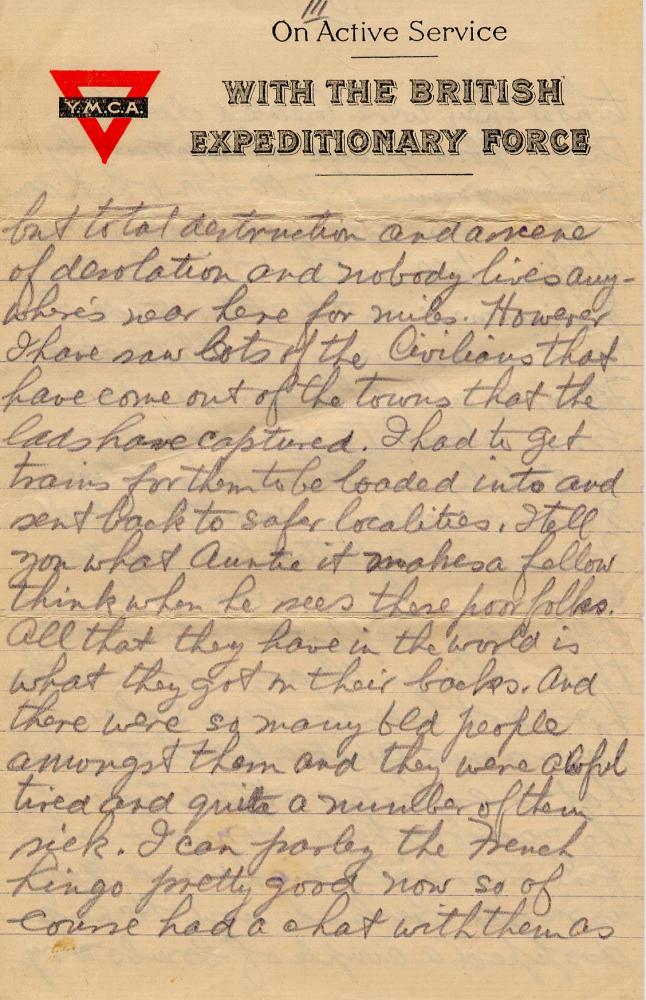 III
On Active Service
WITH THE BRITISH
EXPEDITIONARY FORCE
Y.M.C.A
but total destruction and a scene
of desolation and nobody lives any-
where's near here for miles. However
I have saw lots of the Civilians that
have come out of the towns that the
lads have captured. I had to get
trains for them to be loaded into and
sent back to safer localities. I tell
you what Auntie it makes a fellow
think when he sees these poor folks.
All that they have in the world is
what they got on their backs. And
there were so many old people
amongst them and they were awful
tired and quite a number of them
sick. I can parley the French
Lingo pretty good now so of
course had a chat with them as